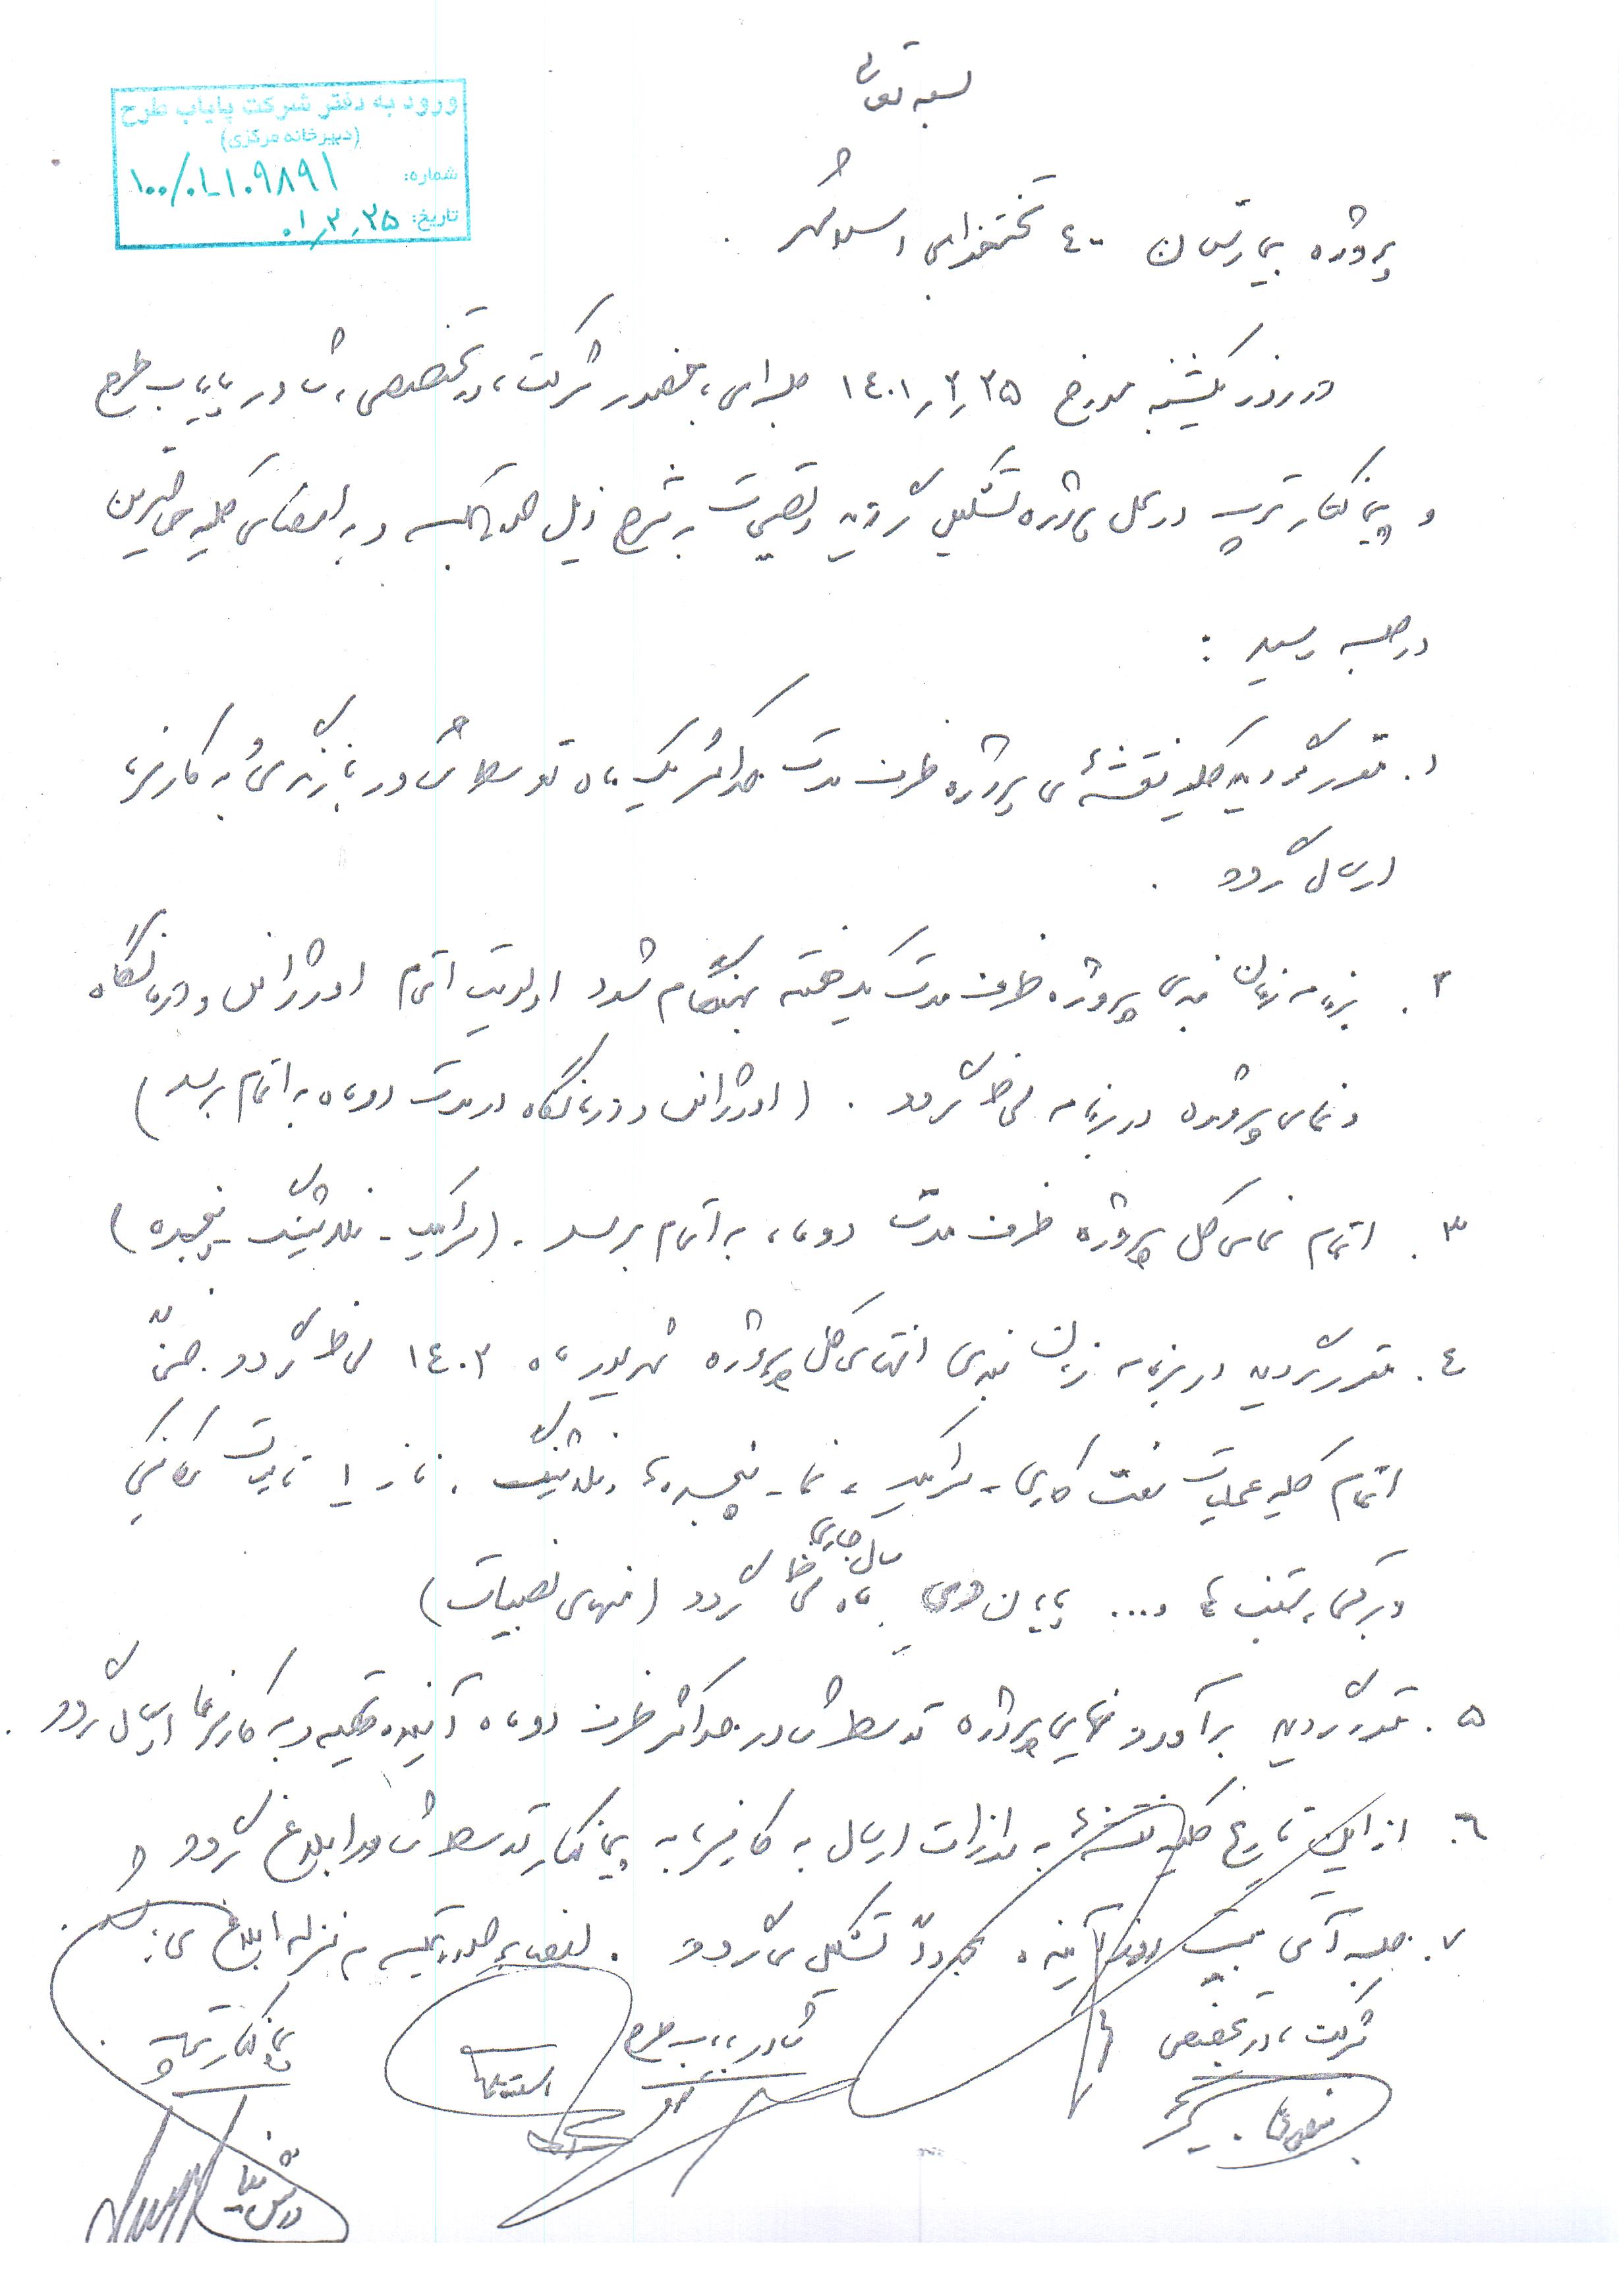 بسمه تعالی
ورود به دفتر شرکت پایاب طرح
(دبیرخانه مرکزی)
شماره: ۱۰۰/۰۱-۱۰۹۸۹۱
تاریخ: ۰۱٫۲٫۲۵
پروژه بیمارستان ۴۰۰ تختخوابی اسلامشهر.
در روز یکشنبه مورخ ۱۴۰۱٫۲٫۲۵ جلسه‌ای با حضور شرکت مادر تخصصی، مشاور پایاب طرح
و پیمانکار در محل پروژه تشکیل گردید و تصمیمات به شرح ذیل صورتجلسه و به امضای کلیه حاضرین
در جلسه رسید :
۱. مقرر گردید کلیه نقشه‌های پروژه ظرف مدت حداکثر یک ماه توسط مشاور بازنگری و به کارفرما
ارسال گردد .
۲. برنامه زمان بندی پروژه ظرف مدت یک هفته بهنگام شود اولویت اتمام اورژانس و درمانگاه
و نمای پروژه در برنامه لحاظ گردد . (اورژانس و درمانگاه در مدت دو ماه به اتمام برسد)
۳. اتمام نمای کل پروژه ظرف مدت دو ماه به اتمام برسد . (سرامیک - فلاشینگ - پنجره)
۴. مقرر گردید در برنامه زمان بندی انتهای کل پروژه شهریور ماه ۱۴۰۲ لحاظ گردد. ضمناً
اتمام کلیه عملیات سفت کاری - سرامیک - نما - پنجره‌ها، فلاشینگ، فاز ۱ تاسیسات مکانیکی
و برقی، سقف‌ها و... پایان دی ماه سال جاری لحاظ گردد (منهای نصبیات)
۵. مقرر گردید برآورد نهایی پروژه توسط مشاور حداکثر ظرف دو ماه آینده تهیه و به کارفرما ارسال گردد .
۶. از این تاریخ کلیه نقشه‌ها به موازات ارسال به کارفرما به پیمانکار توسط مشاور ابلاغ گردد
۷. جلسه آتی بیست روز آینده مجدداً تشکیل می‌گردد . صورتجلسه به منزله ابلاغ می‌باشد.
شرکت مادر تخصصی
مشاور پایاب طرح
پیمانکار